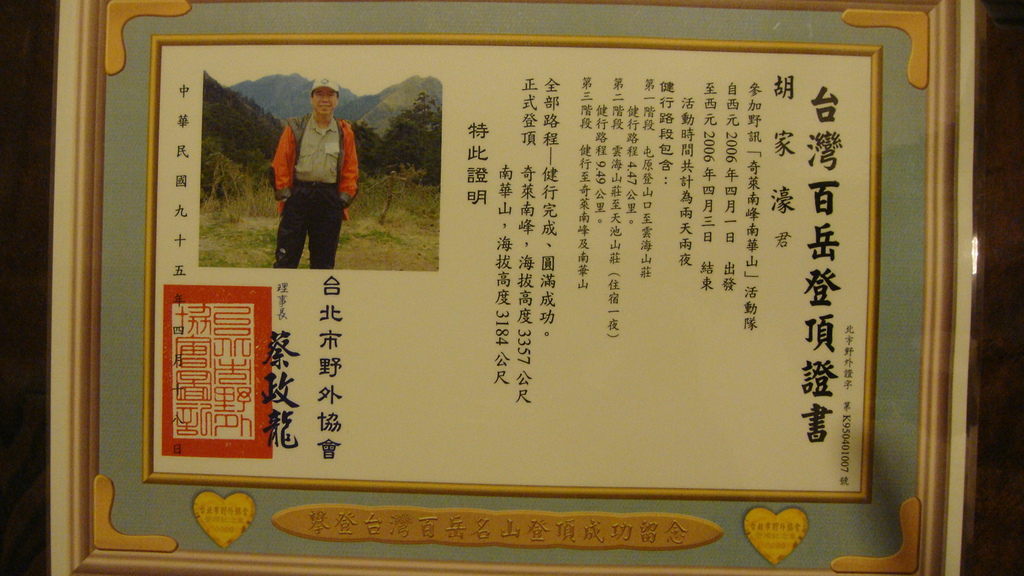 台灣百岳登頂證書
北市野外證字　第K950401007號
胡家濠君
參加野訊「奇萊南峰南華山」活動隊
自西元2006年四月一日　出發
至西元2006年四月三日　結束
活動時間共計為兩天兩夜
健行路段包含：
第一階段　屯原登山口至雲海山莊
健行路程4.47公里。
第二階段　雲海山莊至天池山莊（住宿一夜）
健行路程9.49公里。
第三階段　健行至奇萊南峰及南華山
全部路程—健行完成、圓滿成功。
正式登頂　奇萊南峰，海拔高度3357公尺
南華山，海拔高度3184公尺
特此證明
台北市野外協會
理事長　蔡政龍
中華民國九十五年四月十八日
攀登台灣百岳名山登頂成功留念